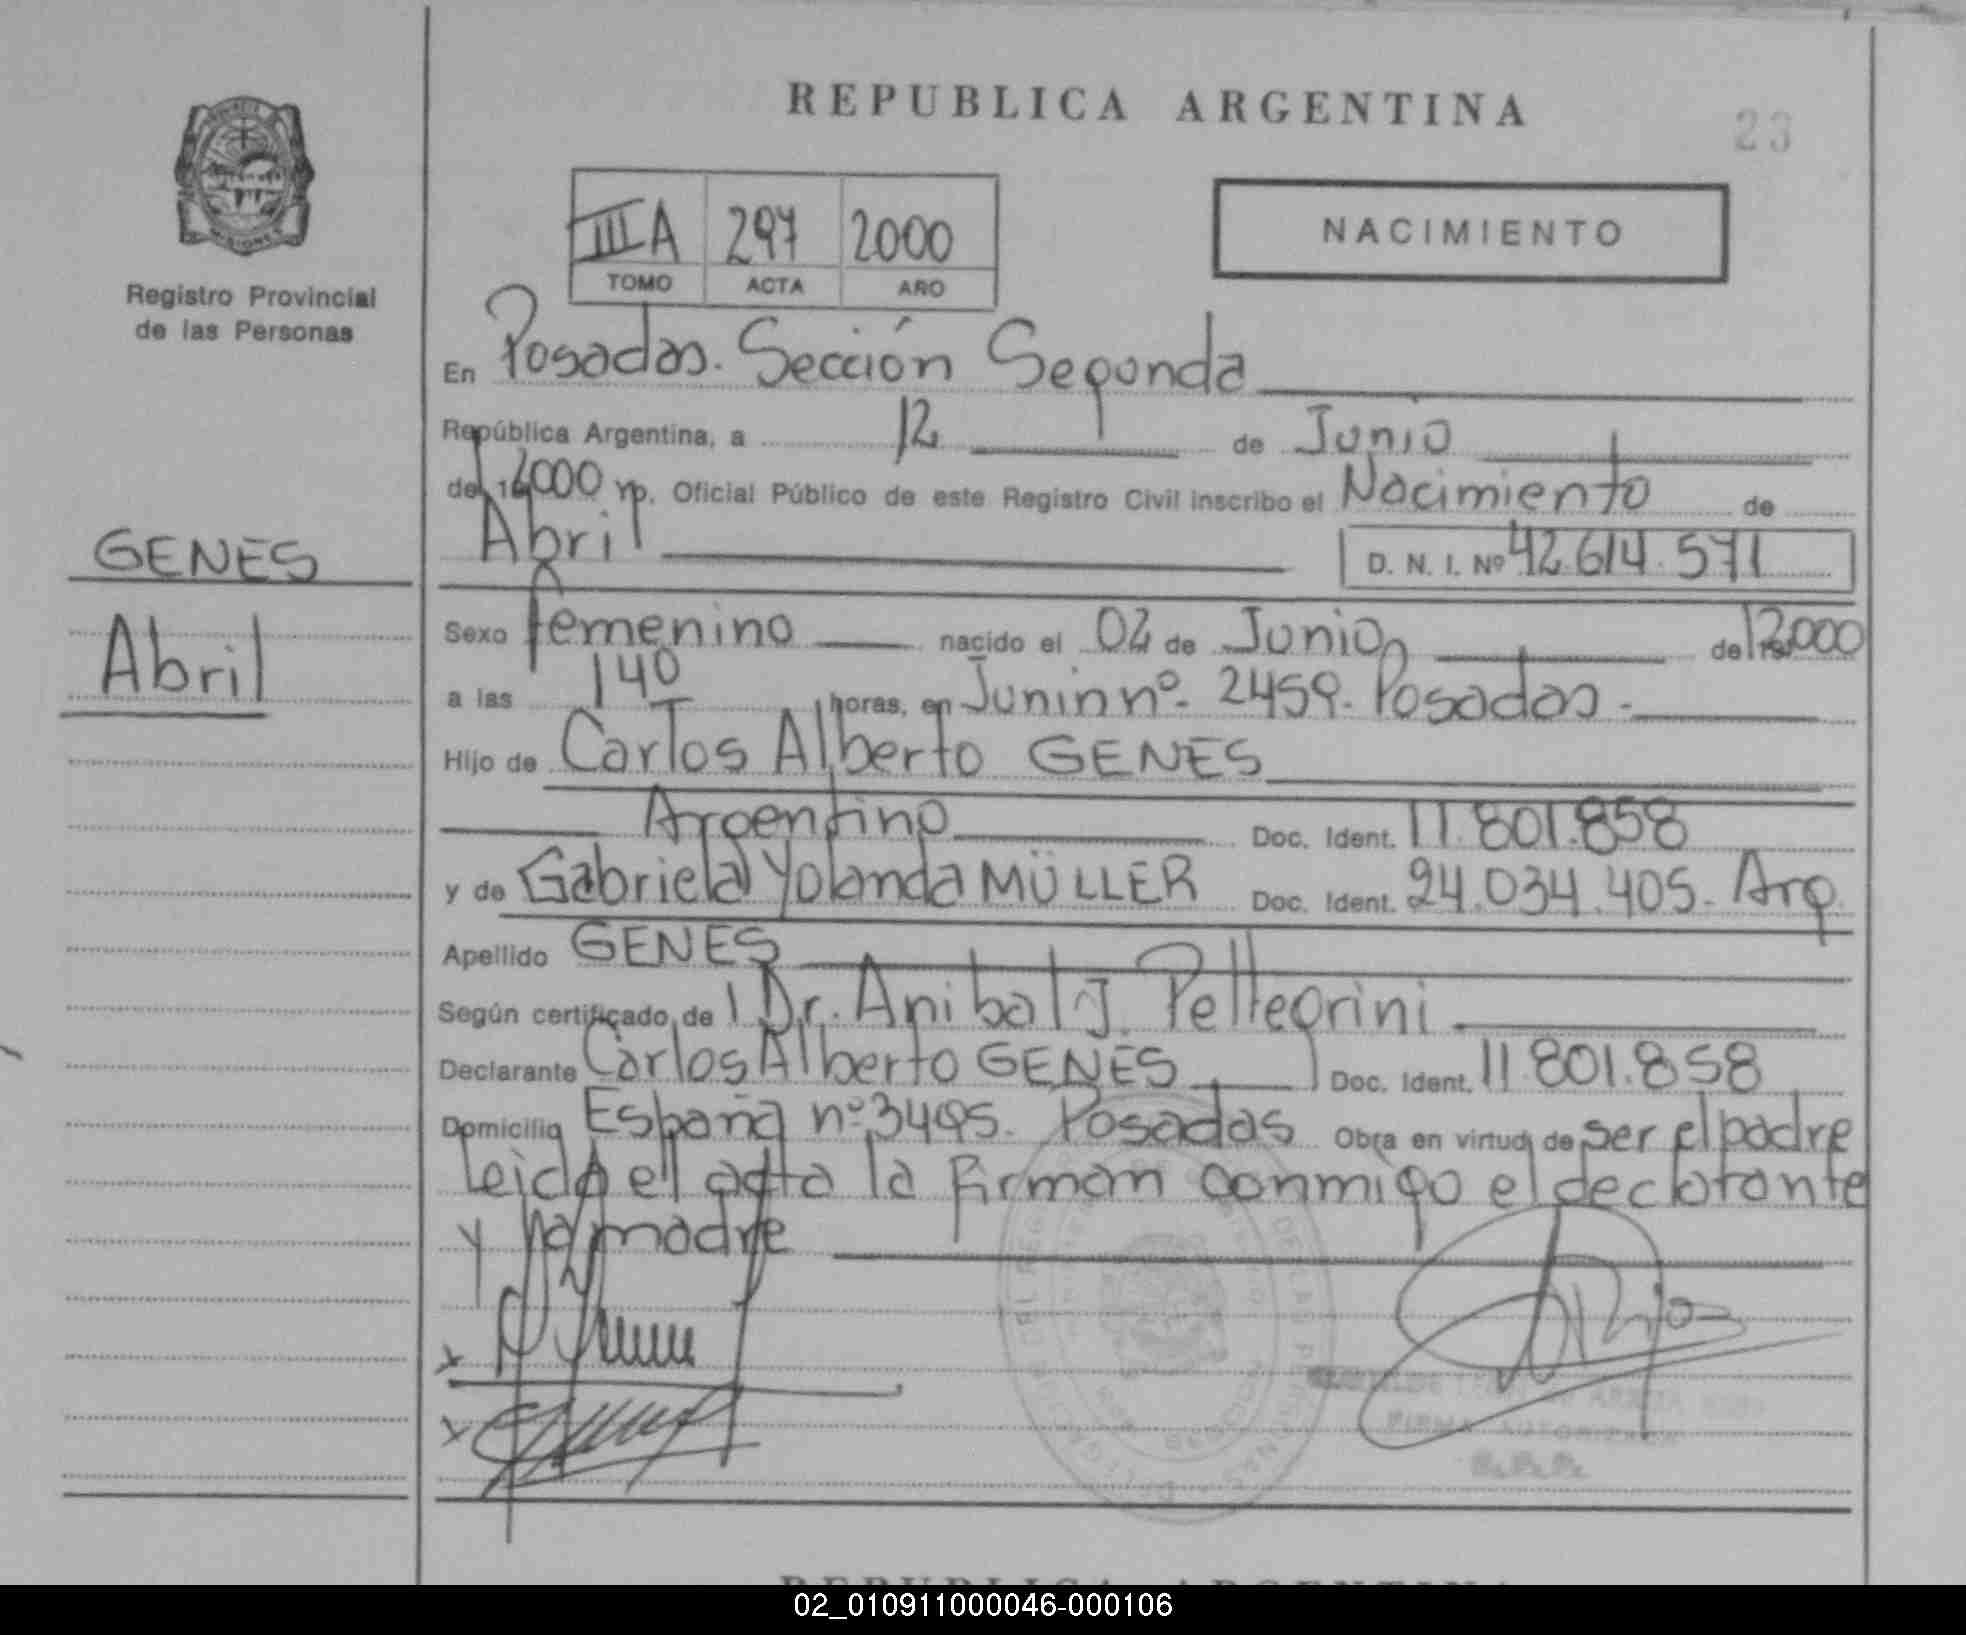 REPUBLICA ARGENTINA
23
MISIONES
Registro Provincial
de las Personas
IIIA 297 2000
TOMO ACTA AÑO
NACIMIENTO
En Posadas. Sección Segunda
República Argentina, a 12 de Junio
del 2000 yo, Oficial Público de este Registro Civil inscribo el Nacimiento de
Abril
D. N. I. Nº 42.614.571
GENES
Abril
Sexo femenino nacido el 02 de Junio del 2000
a las 140 horas, en Junin nº 2459. Posadas.
Hijo de Carlos Alberto GENES
Argentino Doc. Ident. 11.801.858
y de Gabriela Yolanda MÜLLER Doc. Ident. 24.034.405. Arg
Apellido GENES
Según certificado de Dr. Anibal J. Pellegrini
Declarante Carlos Alberto GENES Doc. Ident. 11.801.858
Domicilio España nº 3495. Posadas Obra en virtud de ser el padre
Leida el acta la firman conmigo el declarante
y la madre
FIRMA AUTORIZADA
REPUBLICA ARGENTINA
02_010911000046-000106